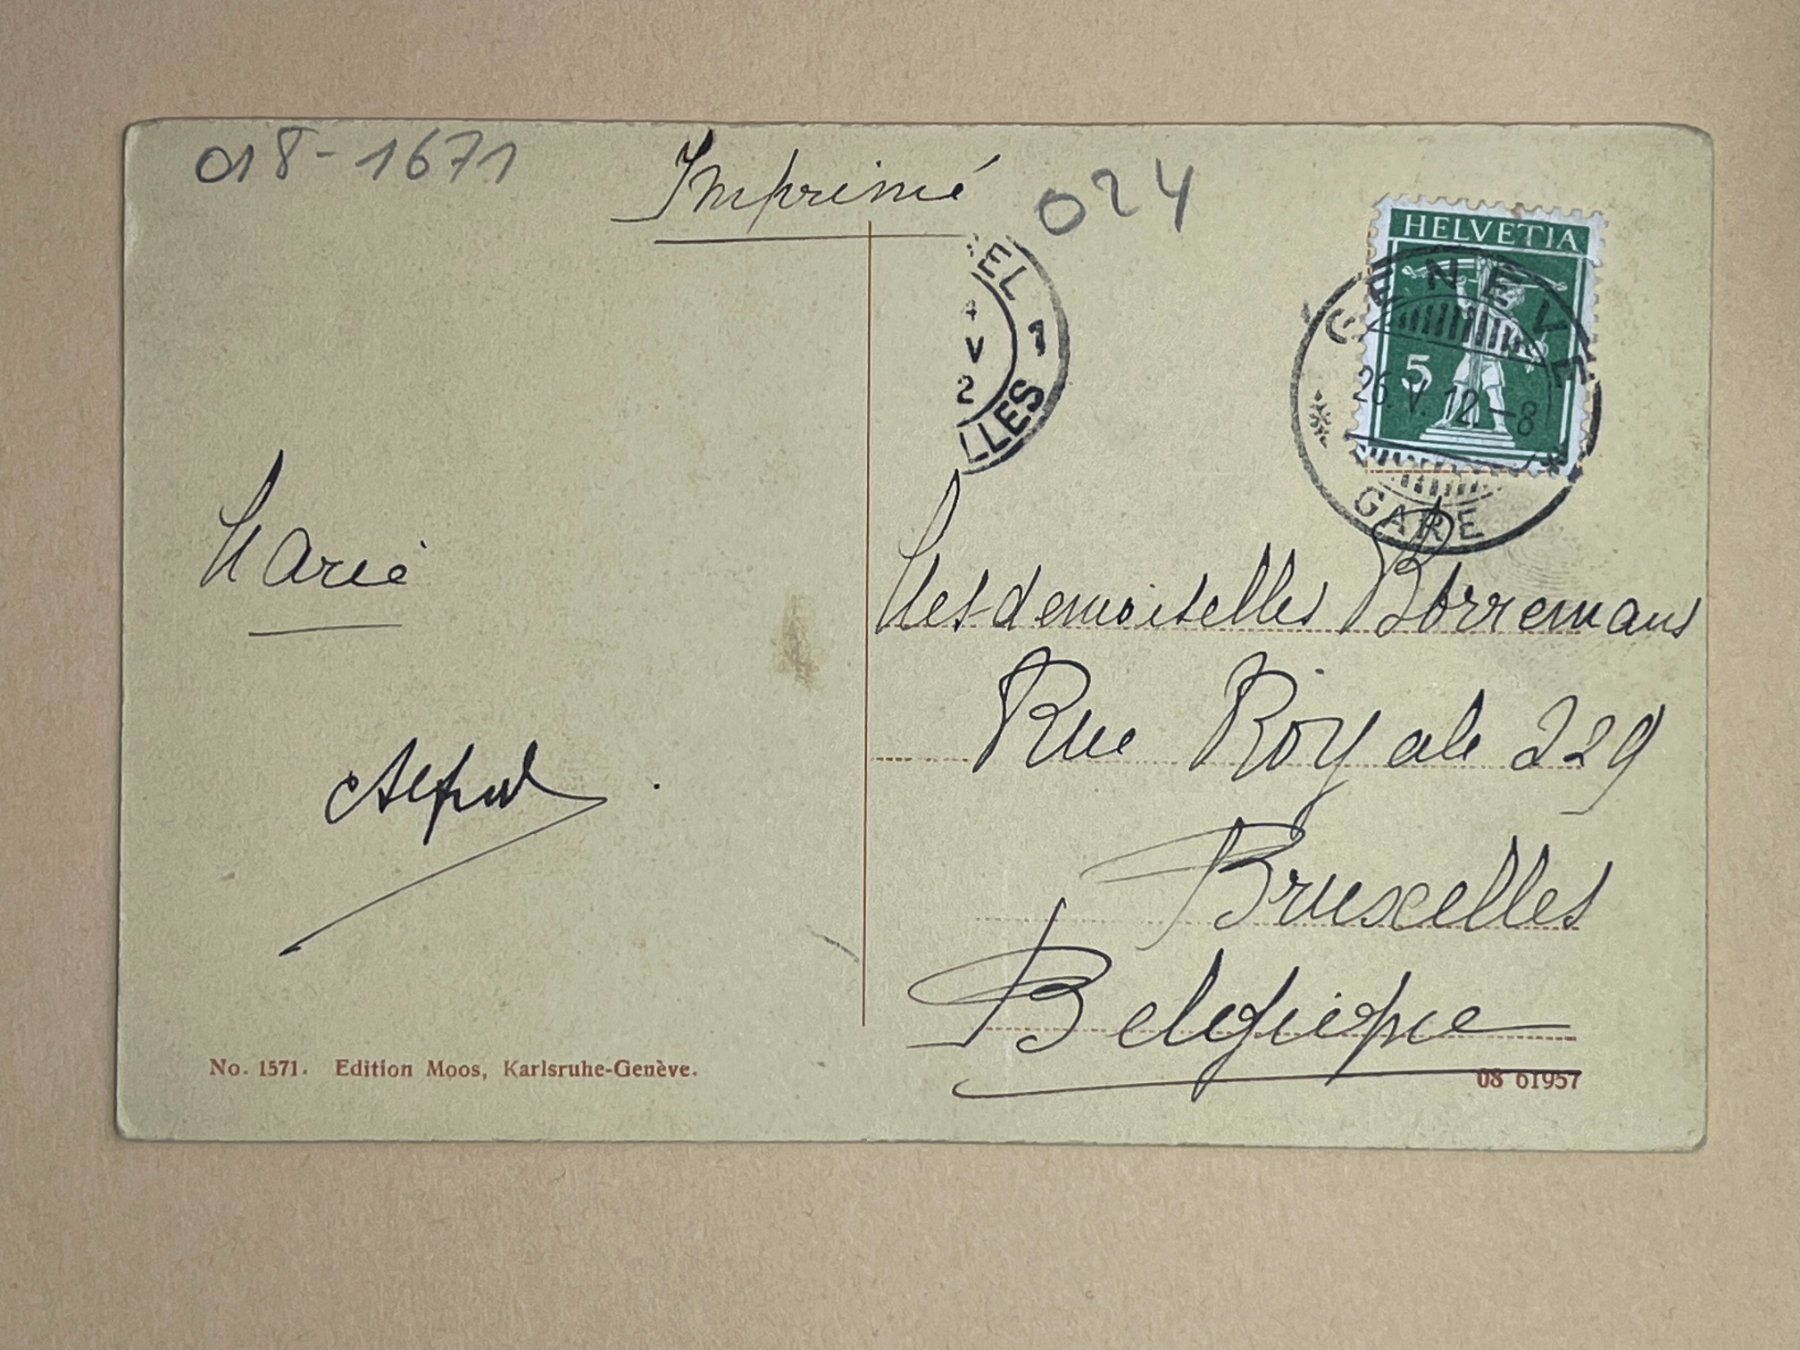 018-1671
Imprimé
024
HELVETIA
5
GENEVE
26.V.12.-8
GARE
EL
1
V
2
LLES
Marie
Alfred
Mesdemoiselles Borremans
Rue Royale 229
Bruxelles
Belgique
No. 1571. Edition Moos, Karlsruhe-Genève.
08 61957